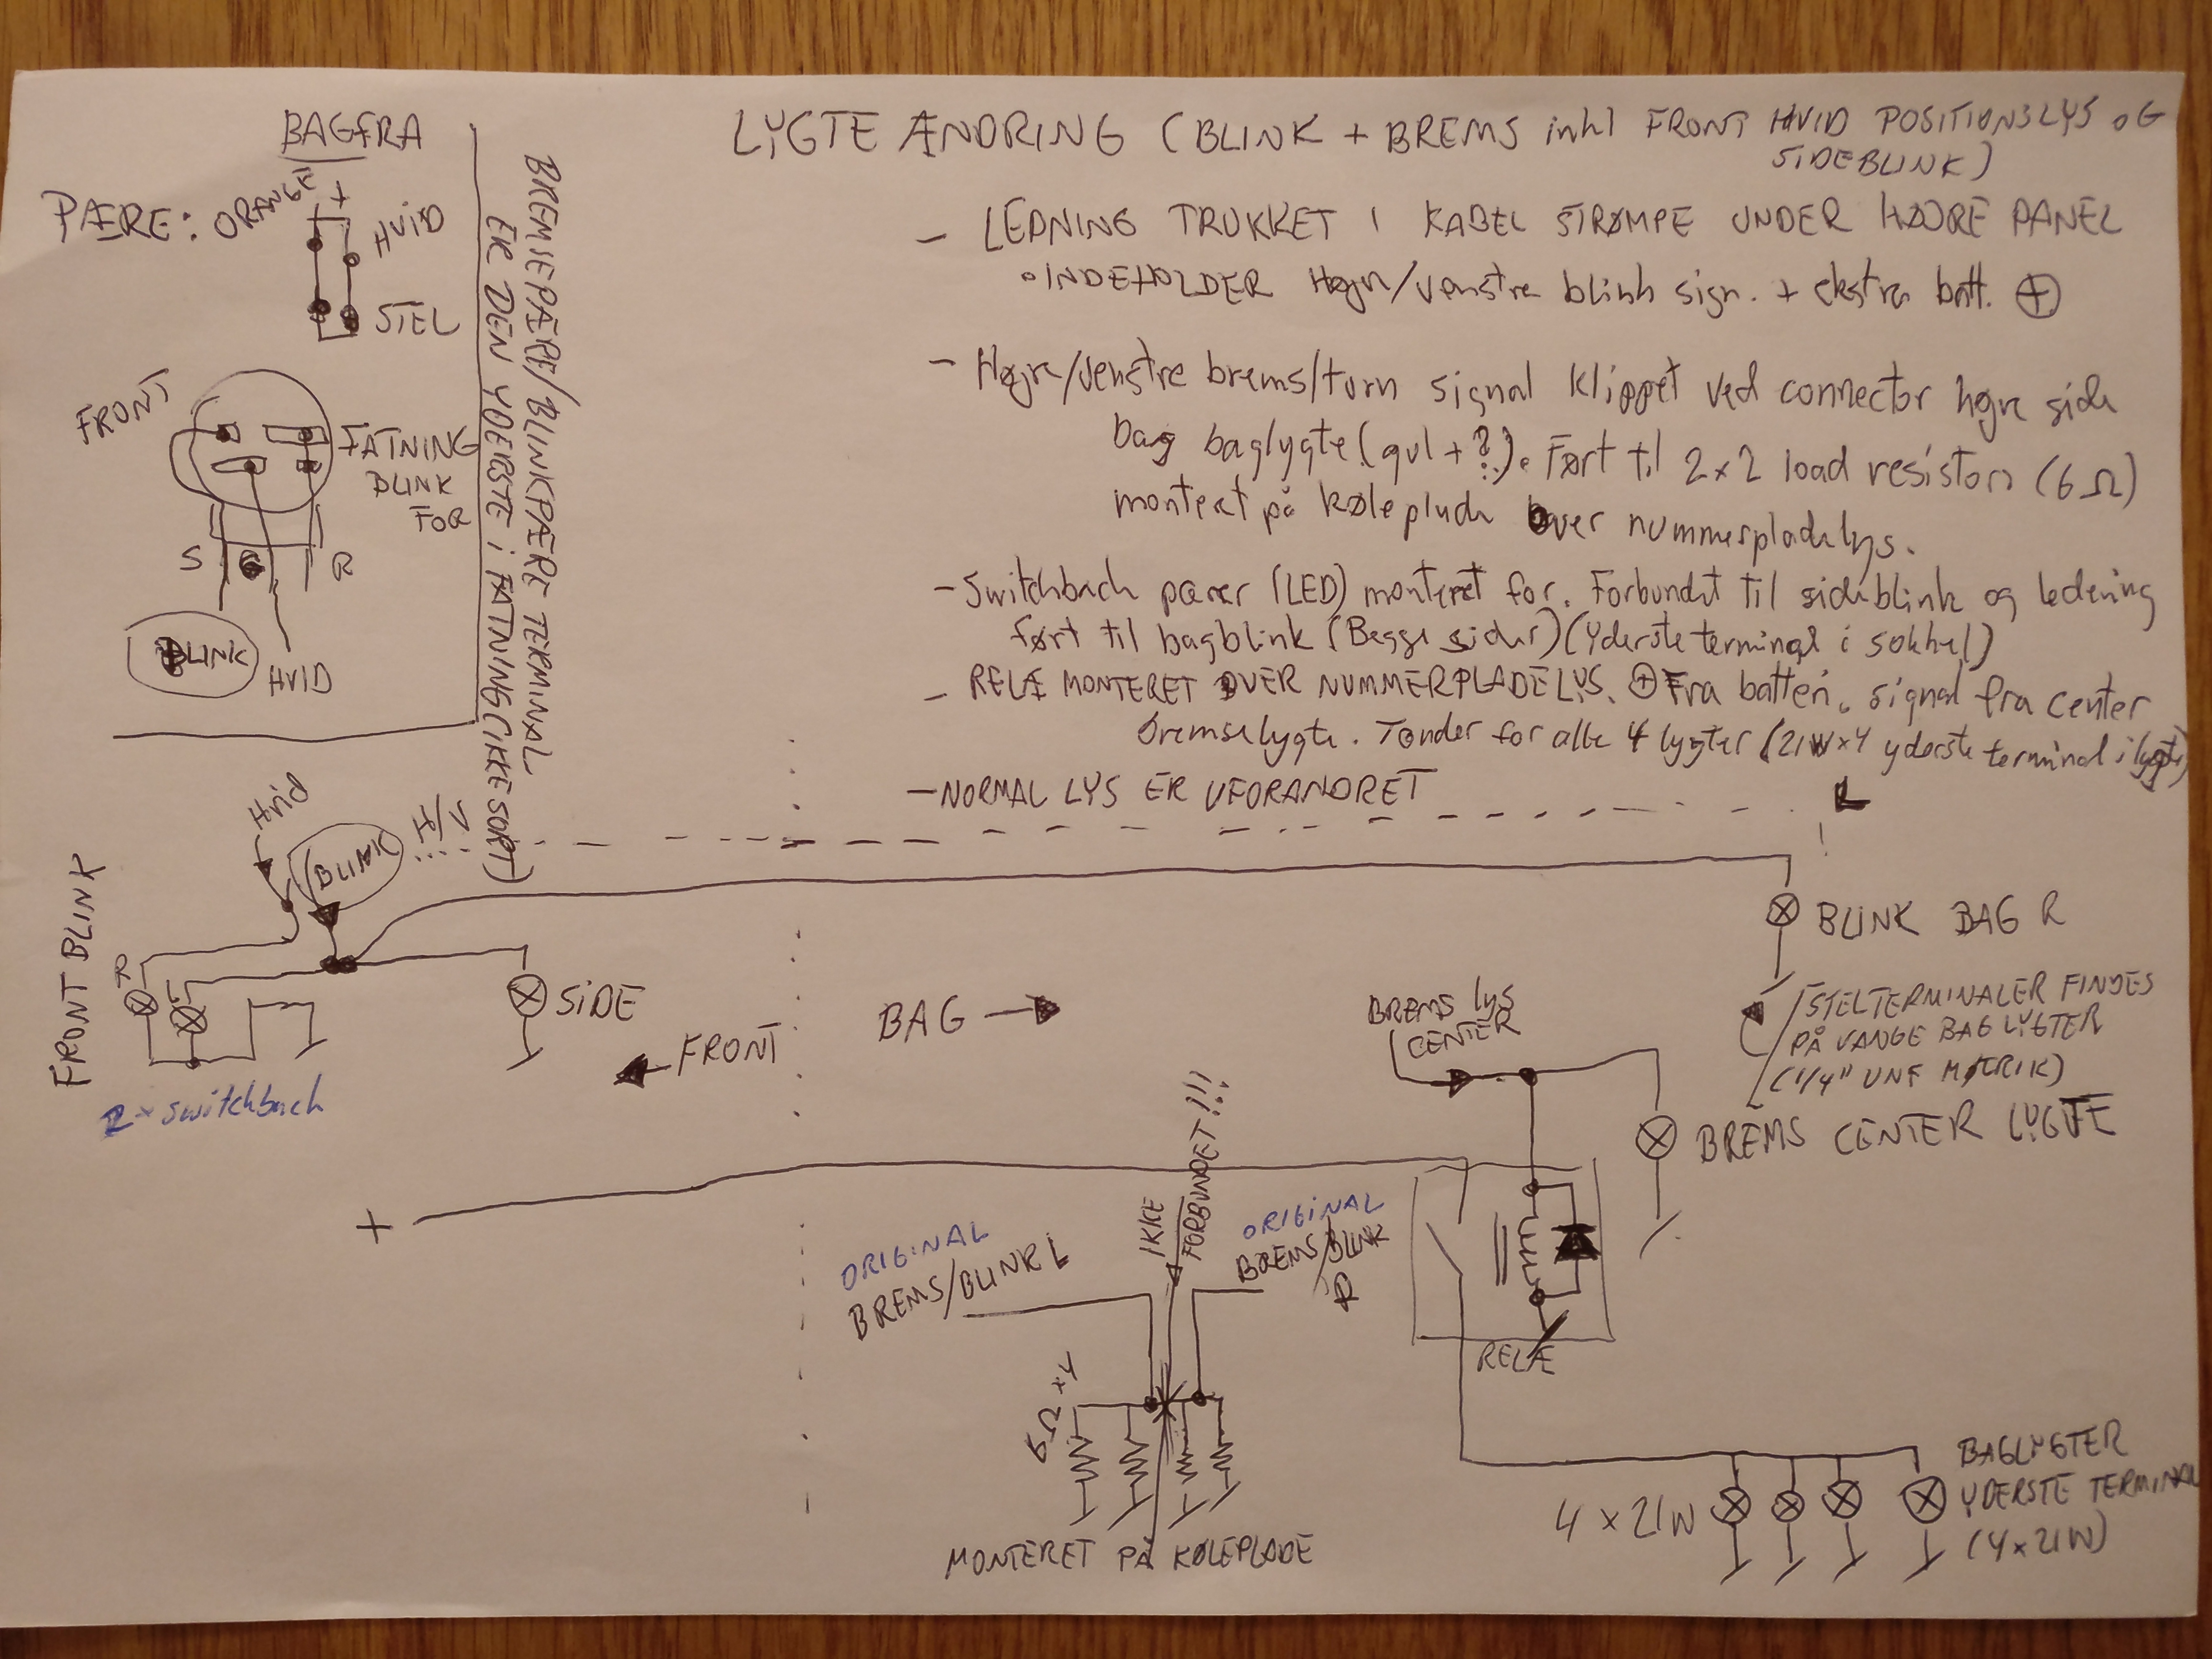 LYGTE ÆNDRING (BLINK + BREMS inkl FRONT HVID POSITIONSLYS OG
SIDEBLINK)
- LEDNING TRUKKET I KABEL STRØMPE UNDER HØJRE PANEL
• INDEHOLDER Højre/venstre blink sign. + ekstra batt. ⊕
- Højre/venstre brems/turn signal klippet ved connector højre side
bag baglygte (gul + ?). Ført til 2x2 load resistors (6Ω)
monteret på køleplade over nummerpladelys.
- Switchback pærer (LED) monteret for. Forbundet til sideblink og ledning
ført til bagblink (Begge sider) (Yderste terminal i sokkel)
- RELÆ MONTERET OVER NUMMERPLADELYS. ⊕ Fra batteri, signal fra center
bremselygte. Tænder for alle 4 lygter (21W x 4 yderste terminal i lygte)
- NORMAL LYS ER UFORANDRET
BAGFRA
PÆRE:
ORANGE
+
HVID
STEL
FRONT
FATNING
BLINK
FOR
S
R
BLINK
HVID
BREMSEPÆRE/BLINKPÆRE TERMINAL
ER DEN YDERSTE i FATNING (IKKE SORT)
L
Hvid
BLINK
FRONT BLINK
R
2x switchback
SIDE
← FRONT
BAG →
BLINK BAG R
STELTERMINALER FINDES
PÅ VANGE BAG LYGTER
(1/4" UNF MØTRIK)
BREMS lys
CENTER
BREMS CENTER LYGTE
+
ORIGINAL
BREMS/BLINK L
IKKE
FORBUNDET!!!
ORIGINAL
BREMS/BLINK
R
RELÆ
6Ω x4
MONTERET PÅ KØLEPLADE
4 x 21W
BAGLYGTER
YDERSTE TERMINAL
(4x21W)